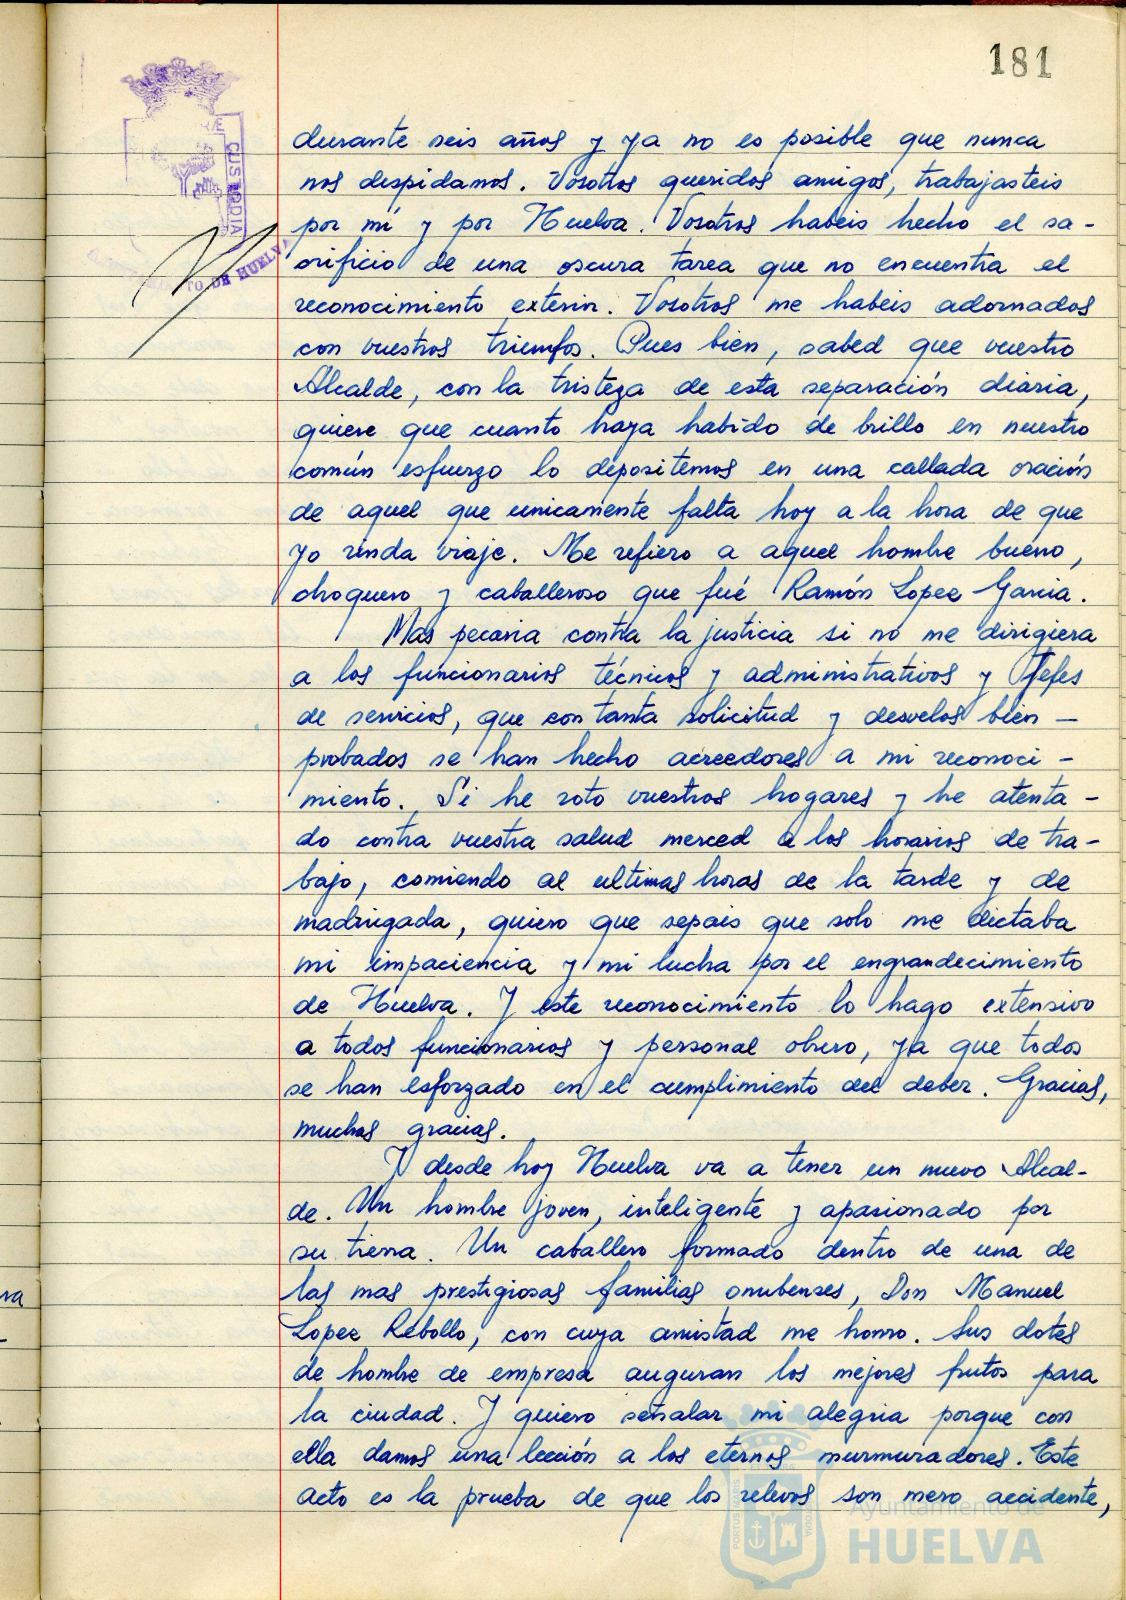 181
durante seis años y ya no es posible que nunca
nos despidamos. Vosotros queridos amigos, trabajasteis
por mí y por Huelva. Vosotros habeis hecho el sa-
crificio de una oscura tarea que no encuentra el
reconocimiento exterior. Vosotros me habeis adornados
con vuestros triunfos. Pues bien, sabed que vuestro
Alcalde, con la tristeza de esta separación diaria,
quiere que cuanto haya habido de brillo en nuestro
común esfuerzo lo depositemos en una callada oración
de aquel que unicamente falta hoy a la hora de que
yo rinda viaje. Me refiero a aquel hombre bueno,
choquero y caballeroso que fué Ramón Lopez Garcia.
Mas pecaria contra la justicia si no me dirigiera
a los funcionarios técnicos y administrativos y Jefes
de servicios, que con tanta solicitud y desvelos bien-
probados se han hecho acreedores a mi reconoci-
miento. Si he roto vuestros hogares y he atenta-
do contra vuestra salud merced a los horarios de tra-
bajo, comiendo al ultimas horas de la tarde y de
madrugada, quiero que sepais que solo me dictaba
mi impaciencia y mi lucha por el engrandecimiento
de Huelva. Y este reconocimiento lo hago extensivo
a todos funcionarios y personal obrero, ya que todos
se han esforzado en el cumplimiento del deber. Gracias,
muchas gracias.
Y desde hoy Huelva va a tener un nuevo Alcal-
de. Un hombre joven, inteligente y apasionado por
su tierra. Un caballero formado dentro de una de
las mas prestigiosas familias onubenses, Don Manuel
Lopez Rebollo, con cuya amistad me honro. Sus dotes
de hombre de empresa auguran los mejores frutos para
la ciudad. Y quiero señalar mi alegria porque con
ella damos una lección a los eternos murmuradores. Este
acto es la prueba de que los relevos son mero accidente,
CUSTODIA
DE HUELVA
Ayuntamiento de
HUELVA